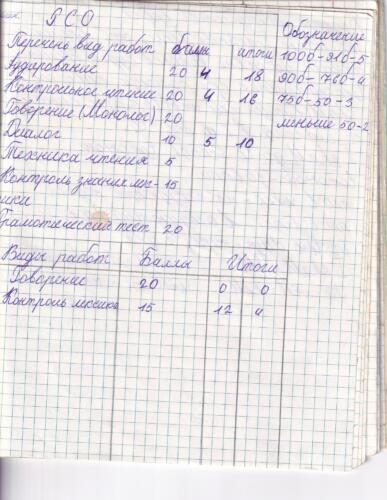 РСО
Обозначение
Перечень вид работ баллы итоги 100б-91б-5
Аудирование 20 4 18 90б-76б-4
Контрольное чтение 20 4 16 75б-50-3
Говорение (Монолог) 20 меньше 50-2
Диалог 10 5 10
Техника чтения 5
Контроль знание лек- 15
ики
Грамотический тест 20
Виды работ Баллы Итоги
Говорение 20 0 0
Контроль лексики 15 12 4